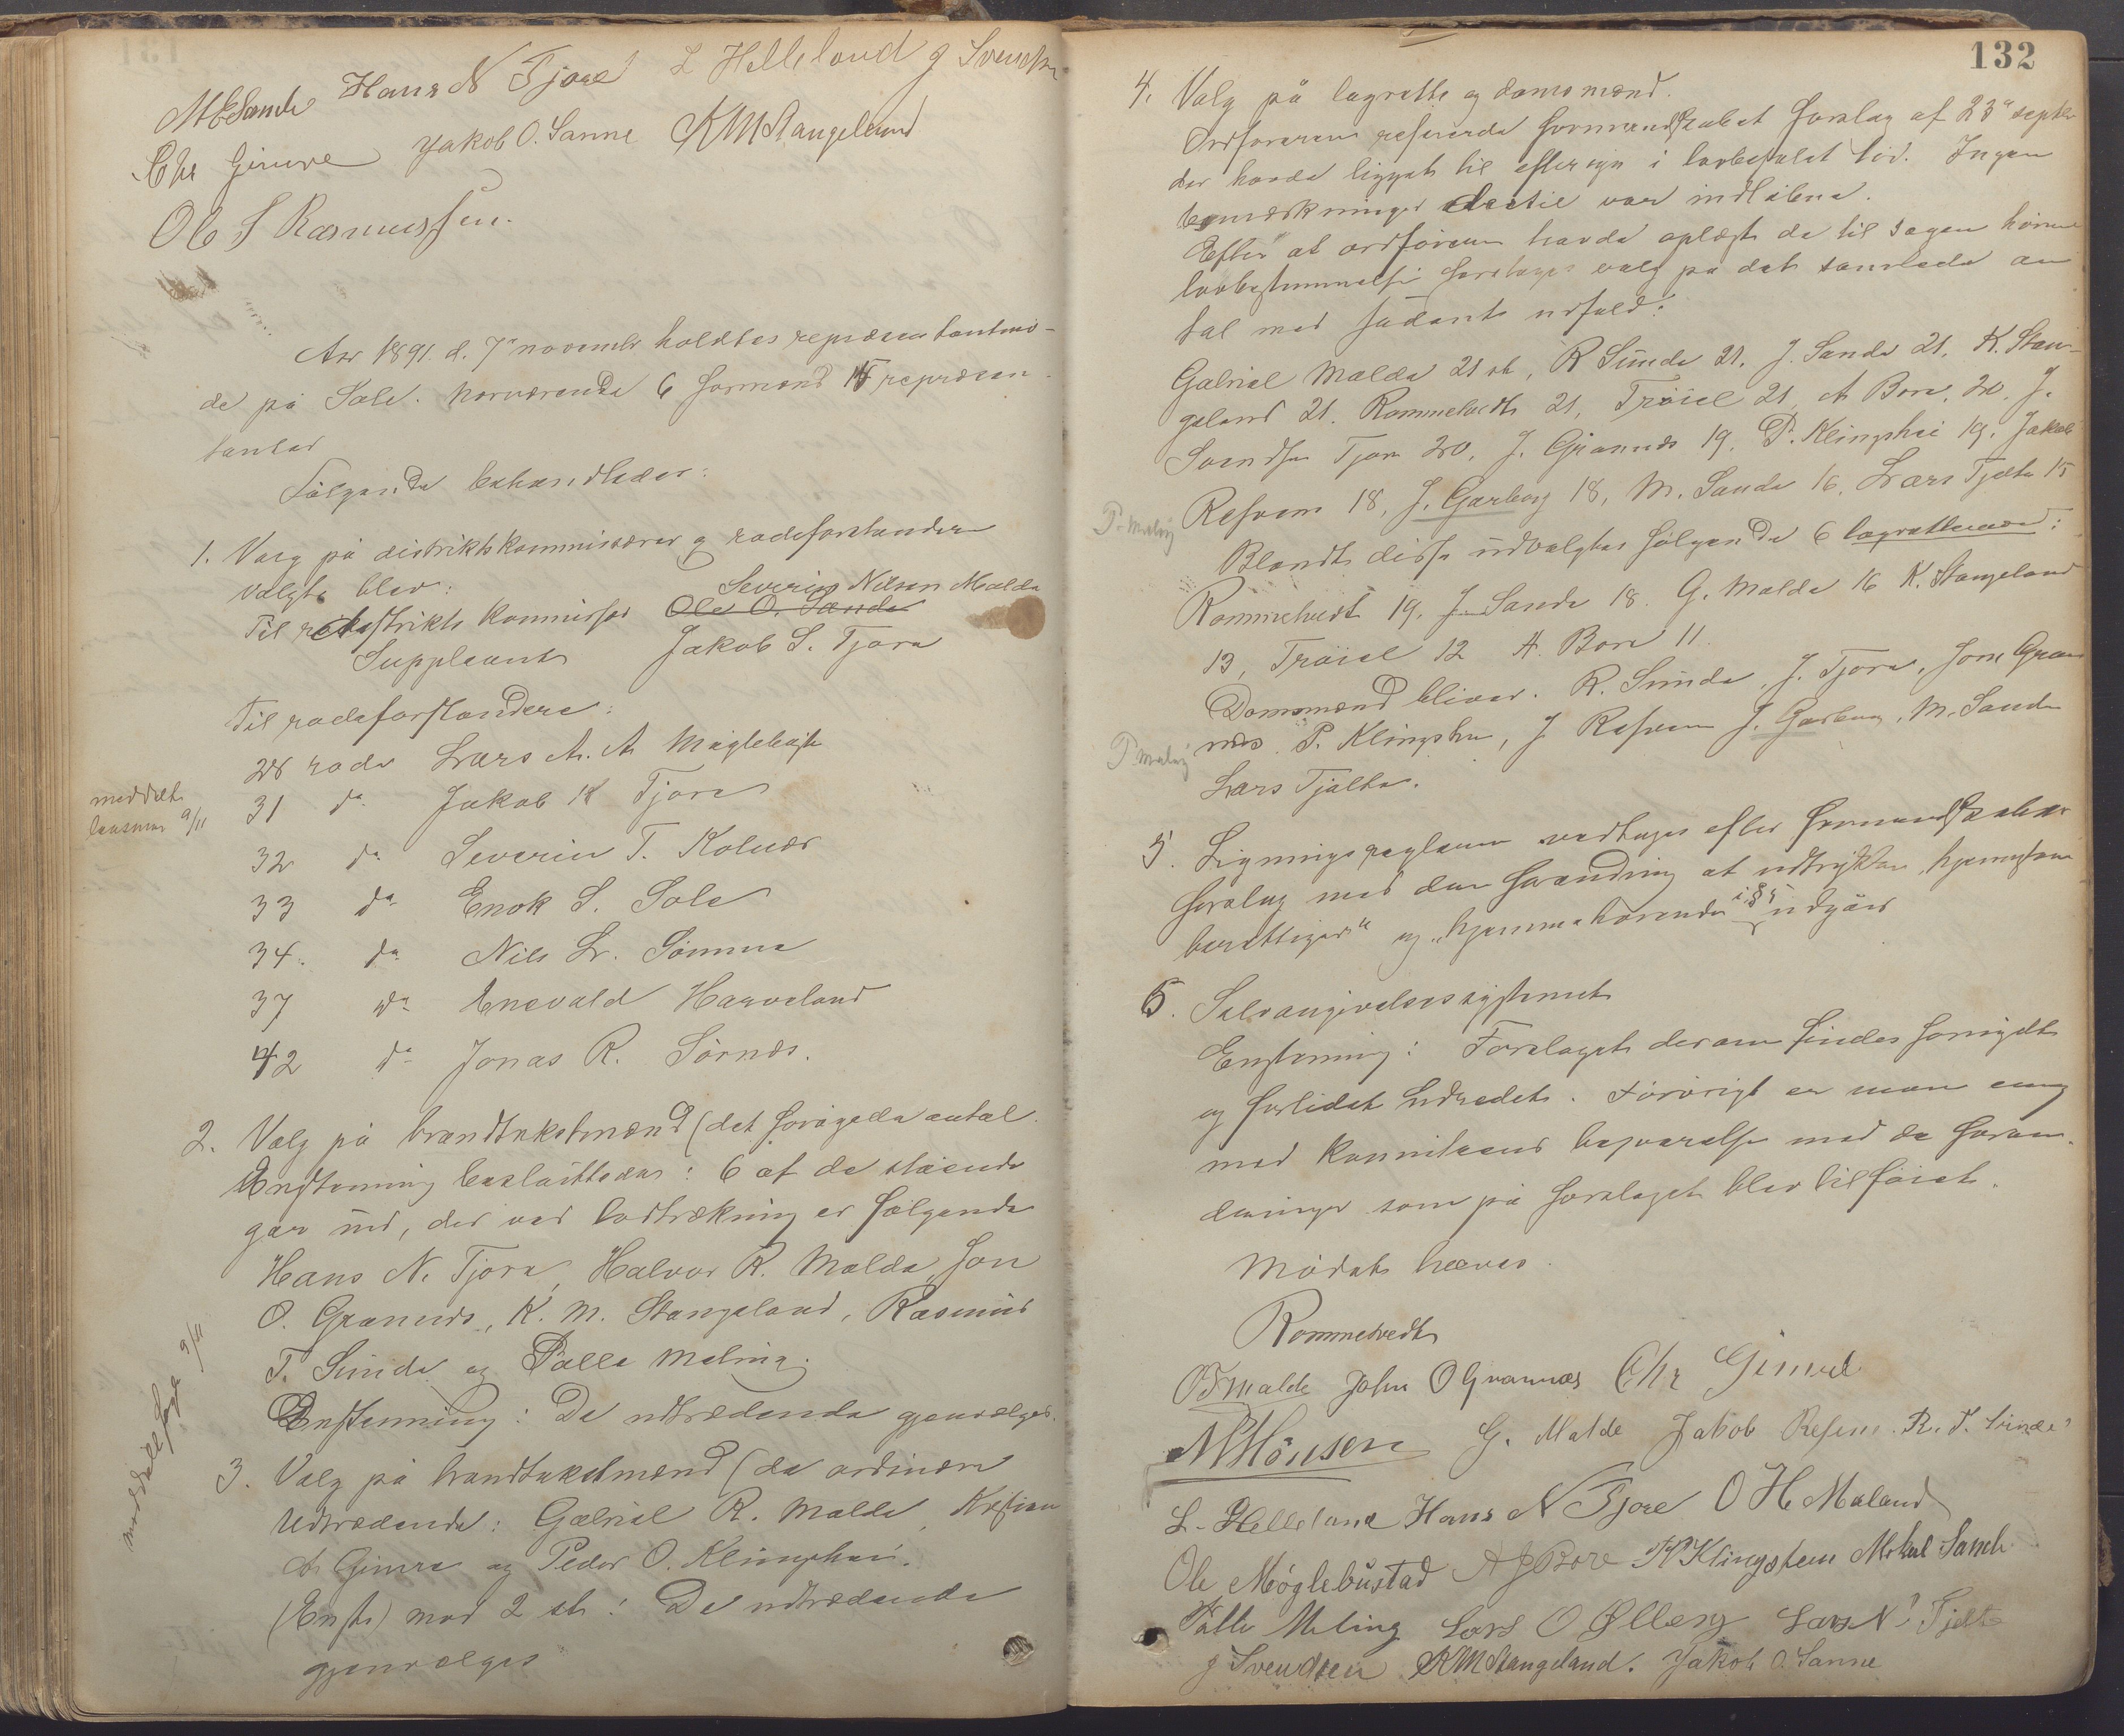 M E Sande Hans N Tjore L Helleland J Svendsen
Chr Gimre Jakob O. Sanne K M Stangeland
Ole S Rasmussen.
Aar 1891. d. 7de novembr holdtes repræsentantmø-
de på Sole. Nærværende 6 formænd 15 repræsen-
tanter
Følgende behandledes:
1. Valg på distriktskommissærer og rodeforstandere
valgte blev:
Severin Nilsen Malde
Til distrikts kommissær Ole O. Sande
Suppleant Jakob S. Tjora
Til rodeforstandere:
28 rode Lars A. A. Møglebust
31 do Jakob K Tjora
meddelt
lensman 9/11
32 do Severin T. Kolnes
33 do Enok S. Sole
34. do Nils Lr. Sømme
37 do Enevald Harveland
42 do Jonas R. Sörnes.
2. Valg på brandtakstmænd (det forøgede antal.
Enstemmig besluttedes: 6 af de stående
går ud, der ved lodtrækning er følgende
Hans N. Tjora, Halvor R. Malde, Jon
O. Grannes, K. M. Stangeland, Rasmus
T. Sunde og Palle Meling.
Enstemmig: De udtrædende gjenvælges.
3. Valg på brandtakstmænd (de ordinære
Udtrædende: Gabriel R. Malde, Kristian
A. Gimre og Peder O. Klingshei.
(Enst.) mod 2 st: De udtrædende
gjenvælges
132
4. Valg på lagrette og domsmænd.
Ordføreren refererede formandskabet forslag af 23de septbr
der havde ligget til eftersyn i lovbefalet tid. Ingen
bemærkninger dertil var indløbne.
Efter at ordføreren havde oplæst de til sagen hørende
lovbestemmelser foretoges valg på det samlede an
tal med sådant udfald:
Gabriel Malde 21 st, R Sunde 21, J. Sande 21, K. Stan-
geland 21. Rommetvedt 21, Trøiel 21, A Bore, 20, J.
Svendsen Tjora 20, J. Grannes 19, P. Klingshei 19, Jakob
Refsem 18, J. Garborg 18, M. Sande 16, Lars Tjelta 15
P. Meling
Blandt disse udvalgtes følgende 6 lagrettemænd:
Rommetvedt 19, J. Sande 18 G. Malde 16 K. Stangeland
13, Trøiel 12 A. Bore 11.
Domsmænd bliver. R. Sunde, J. Tjora, Jone Gran
nes P. Klingshei, J Refsem J. Garborg, M. Sande
P Meling
Lars Tjelta.
5. Ligningsreglerne vedtages efter formandskabets
forslag med den forandring at udtrykkene "hjemstavns
berettiget" og "hjemmehørende i § 5 udgår
6. Selvangivelsessystemet
Enstemmig: Forslaget derom findes fornøiet
og forlidet udredet. Forøvrigt er man enig
med komiteens besvarelse med de foran-
dringer som på forslaget blev tilføiet.
Mødet hæves.
Rommetvedt
O T Malde John O Grannæs Chr Gimre
G. Malde Jakob Refsem. R. T. Sunde
L. Helleland Hans N Tjore O H Meland
Ole Møglebustad A J Bore P Klingsheim Mikal Sande
Palle Meling Lars O Ølberg Lars N Tjelta
J Svendsen K M Stangeland. Jakob O. Sanne